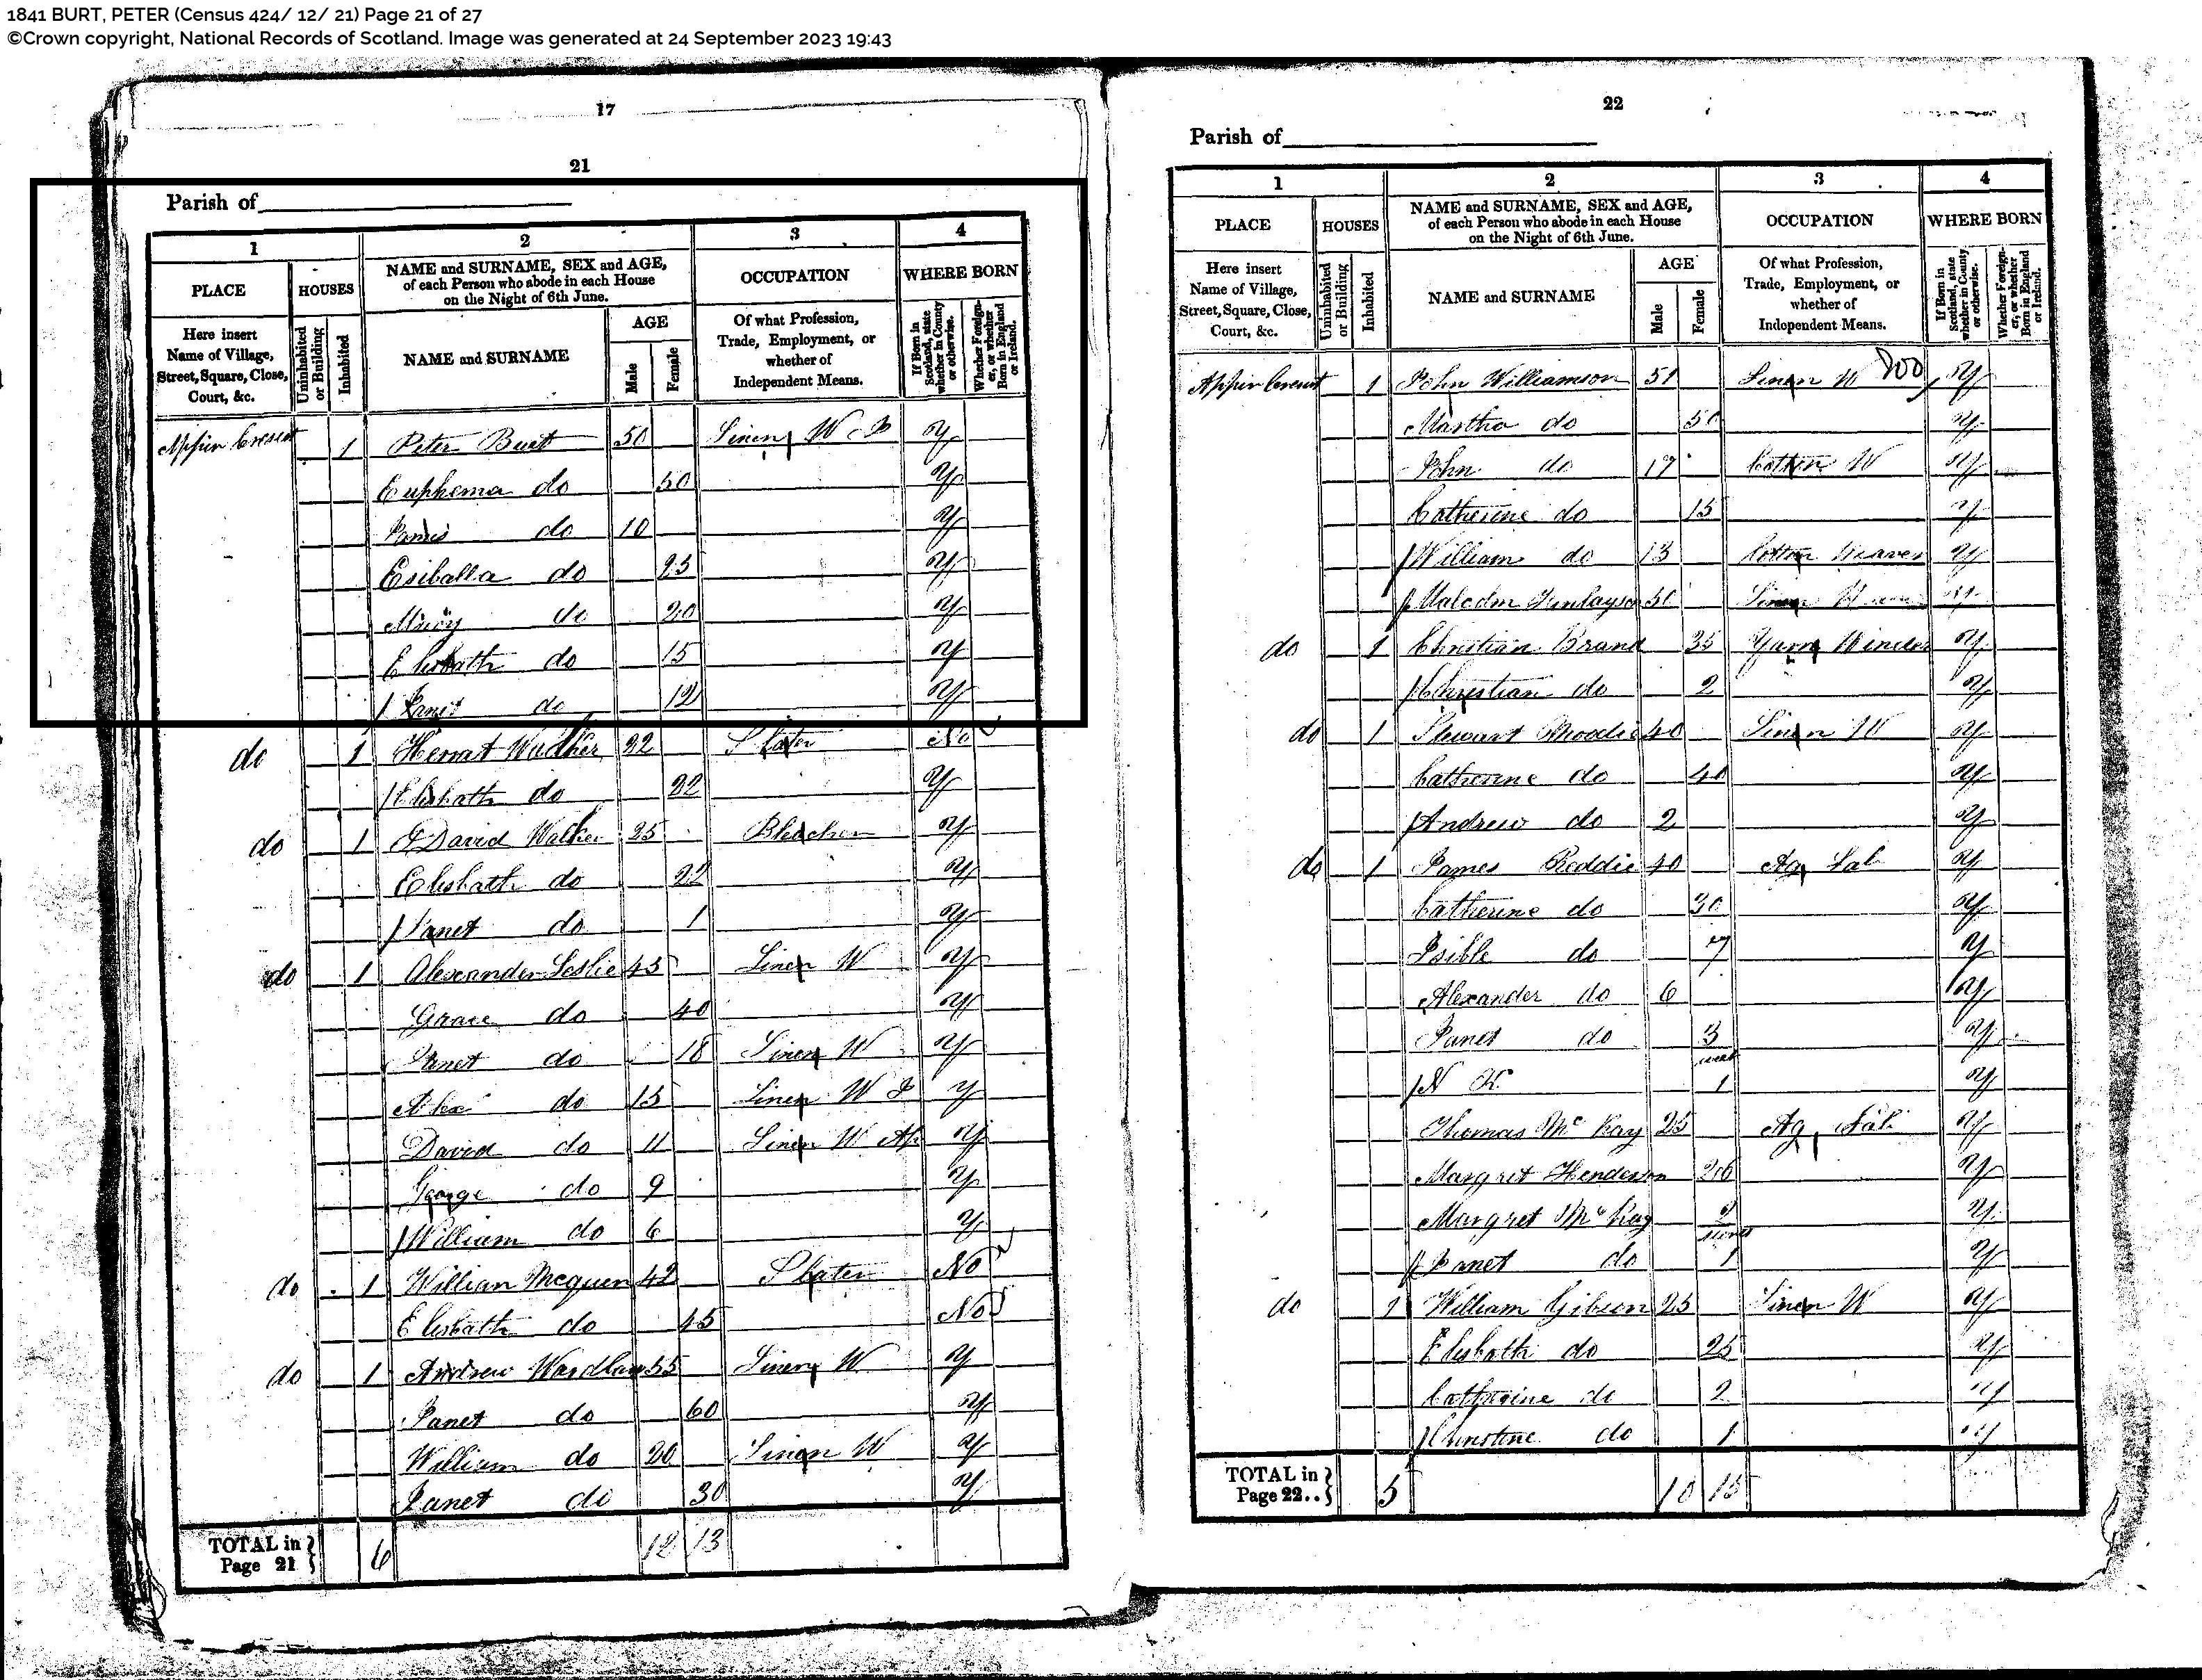 1841 BURT, PETER (Census 424/ 12/ 21) Page 21 of 27
©Crown copyright, National Records of Scotland. Image was generated at 24 September 2023 19:43
17
21
Parish of
1 2 3 4
PLACE HOUSES NAME and SURNAME, SEX and AGE, of each Person who abode in each House on the Night of 6th June. OCCUPATION WHERE BORN
Here insert Name of Village, Street, Square, Close, Court, &c. Uninhabited or Building Inhabited NAME and SURNAME AGE Male Female Of what Profession, Trade, Employment, or whether of Independent Means. If Born in Scotland, state whether in County or otherwise. Whether Foreigner, or whether Born in England or Ireland.
Appin Cresent 1 Peter Burt 50 Linen W Y
Euphema do 50 Y
do 10 Y
Esiballa do 25 Y
do 20 Y
Elesbath do 15 Y
do 12 Y
do 1 32 Slater No
Elesbath do 22 Y
do 1 David Walker 25 Bleacher Y
Elesbath do 22 Y
Janet do 1 Y
do 1 Alexander Leslie 45 Linen W Y
Grace do 40 Y
Janet do 18 Linen W Y
Alex do 15 Linen W Y
David do 11 Linen W Ap Y
George do 9 Y
William do 6 Y
do 1 William Mcquen 42 Slater No
Elesbath do 45 No
do 1 Andrew Wardlaw 55 Linen W Y
Janet do 60 Y
William do 20 Linen W Y
Janet do 30 Y
TOTAL in Page 21 6 12 13
22
Parish of
1 2 3 4
PLACE HOUSES NAME and SURNAME, SEX and AGE, of each Person who abode in each House on the Night of 6th June. OCCUPATION WHERE BORN
Here insert Name of Village, Street, Square, Close, Court, &c. Uninhabited or Building Inhabited NAME and SURNAME AGE Male Female Of what Profession, Trade, Employment, or whether of Independent Means. If Born in Scotland, state whether in County or otherwise. Whether Foreigner, or whether Born in England or Ireland.
Appin Cresent 1 John Williamson 51 Linen W Y
Martha do 50 Y
John do 17 Cotton W Y
Catherine do 15 Y
William do 13 Cotton Weaver Y
Malcolm Finlayson Linen Y
do 1 Christian Brand 35 Yarn Winder Y
Christian do 2 Y
do 1 Stewart Rhodie 40 Linen W Y
Catherine do 40 Y
Andrew do 2 Y
do 1 James Reddie 40 Ag Lab Y
Catherine do 30 Y
Isible do 7 Y
Alexander do 6 Y
Janet do 3 Y
N K 1 Y
Thomas Mc Kay 25 Ag Lab Y
Margret Henderson 26 Y
Margret Mc Kay 2 Y
Janet do 1 Y
do 1 William Gibson 25 Linen W Y
Elesbath do 25 Y
Catherine do 2 Y
Christine do 1 Y
TOTAL in Page 22.. 5 10 15